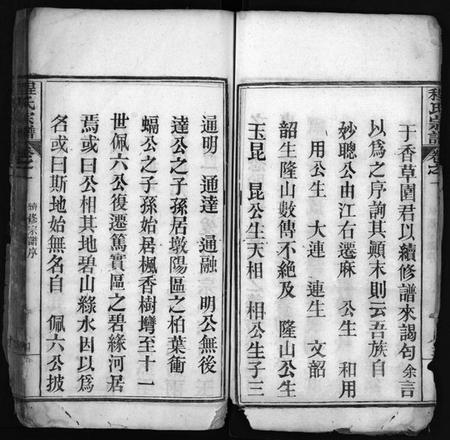 程氏宗譜
卷之一
于香草園君以續修譜來謁匄余言
以為之序詢其顛末則云吾族自
妙聰公由江右遷麻　公生　和用
用公生　大連　連生　文韶
韶生隆山數傳不絕及　隆山公生
玉昆　昆公生天相　相公生子三
通明　通達　通融　明公無後
達公之子孫居墩陽區之柏葉衝
融公之子孫始居楓香樹灣至十一
世佩六公復遷篤實區之碧綠河居
焉或曰公相其地碧山綠水因以為
名或曰斯地始無名自　佩六公披
程氏宗譜
卷之一
續修宗譜序